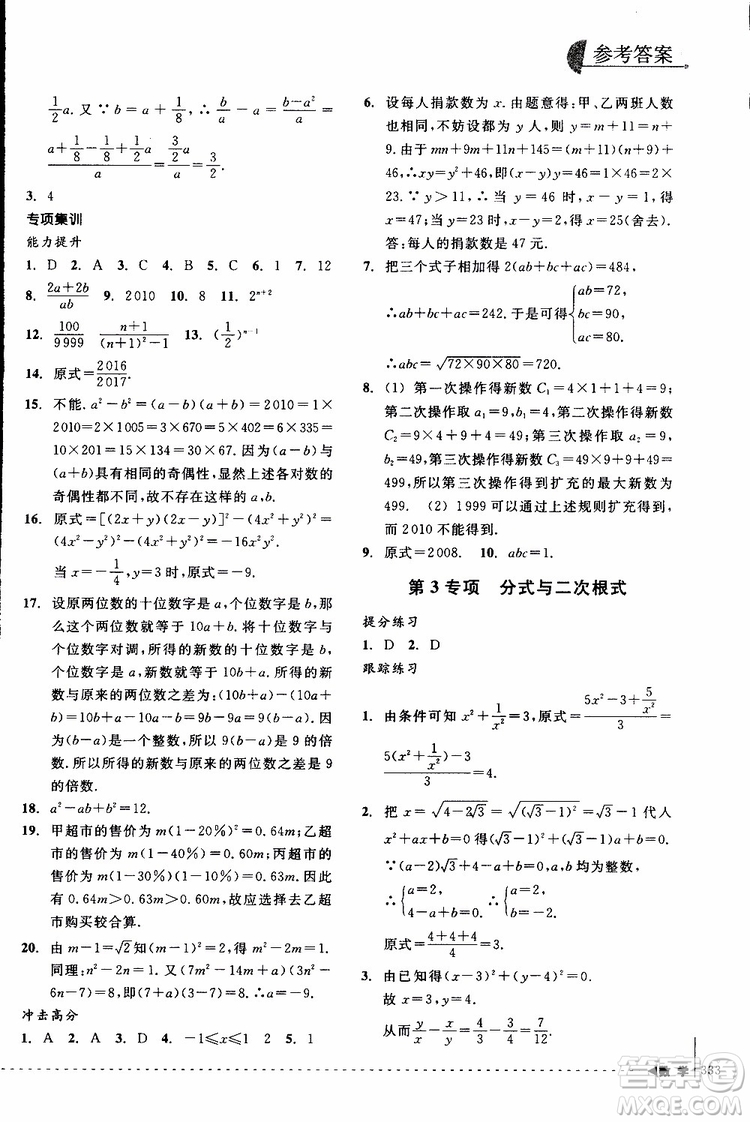 参考答案
1/2 a. 又∵b=a+1/8, ∴b/a-a=(b-a²)/a=
(a+1/8-1/8+1/2 a)/a=(3/2 a)/a=3/2.
3. 4
专项集训
能力提升
1. D 2. A 3. C 4. B 5. C 6. 1 7. 12
8. (2a+2b)/ab 9. 2010 10. 8 11. 2ⁿ⁺²
12. 100/9999 (n+1)/((n+1)²-1) 13. (1/2)ⁿ
14. 原式=2016/2017.
15. 不能. a²-b²=(a-b)(a+b)=2010=1×
2010=2×1005=3×670=5×402=6×335
=10×201=15×134=30×67. 因为(a-b)与
(a+b)具有相同的奇偶性, 上述各对数的
奇偶性都不同, 故 a、b 不存在.
16. 原式=[(2x+y)(2x-y)]²-(4x²+y²)²=
(4x²-y²)²-(4x²+y²)²=-16x²y².
当 x=-1/4, y=3 时, 原式=-9.
17. 设原两位数的十位数字是 a, 个位数字是 b, 那
么这个两位数就等于 10a+b. 将十位数字与
个位数字对调, 所得的新数的十位数字是 b,
个位数字是 a, 新数就等于 10b+a. 所得的新
数与原来的两位数之差为:(10b+a)-(10a+
b)=10b+a-10a-b=9b-9a=9(b-a). 因为
(b-a)是一个整数, 所以 9(b-a)是 9 的倍
数. 所以所得的新数与原来的两位数之差是 9
的倍数.
18. a²-ab+b²=12.
19. 甲超市的售价为 m(1-20%)²=0.64m;乙超
市的售价为 m(1-40%)=0.6m;丙超市的售
价为 m(1-30%)(1-10%)=0.63m. 因为
0.64m>0.63m>0.6m, 故应选择去乙超
市购买较合算.
20. 由 m-1=√2知(m-1)²=2. ∴m²-2m=1.
同理:n²-2n=1. ∴(7m²-14m+a)(3n²-
6n-7)=8. ∴(7+a)(3-7)=8. ∴a=-9.
冲击高分
1. A 2. A 3. D 4. -1≤x≤1 2 5. 1
6. 设每人捐款数为 x. 由题意得:甲、乙两班人数
也相同, 不妨设都为 y 人, 则 y=m+11=n+
9. 由于 mn+9m+11n+145=(m+11)(n+9)+
46, ∴xy=y²+46, 即 y(x-y)=46=46×1=2×
23. ∵y>11, ∴当 y=46 时, x-y=1, 于是 x=
47;当 y=23 时, x-y=2, 于是 x=25(舍去).
答:每人的捐款数是 47 元.
7. 把三个式子相加得 2(ab+bc+ac)=484,
∴ab+bc+ac=242. 于是可得{ab=72, bc=90, ac=80.
∴abc=√(72×90×80)=720.
8. (1) 第一次操作得新数 C₁=4×1+1+4=9;
第二次操作取 a₁=9, b₁=4, 第二次操作得新数
C₂=9×4+9+4=49;第三次操作取 a₂=49,
b₂=9, 第三次操作得新数 C₃=49×9+49+9=
499. 所以操作三次后得到所扩充的最大数为
499. (2) 1999 可以通过上述规则扩充得到,
而 2010 不能得到.
9. 原式=2008. 10. abc=1.
第 3 专项 分式与二次根式
提分练习
1. D 2. D
跟踪练习
1. 由条件可知 x²+1/x²=3, 原式=(5x²-3+5/x²)/3=
(5(x²+1/x²)-3)/3=4.
2. 把 x=√(4-2√3)=√((√3-1)²)=√3-1 代人
x²+ax+b=0, 得(a-2)√3+4-a+b=0.
∵(a-2)√3+4-a+b=0, a、b 均为整数.
∴{a=2, 4-a+b=0. ∴{a=2, b=-2.
原式=(4+4+4)/4=3.
3. 由已知得(x-3)²+(y-4)²=0.
故 x=3, y=4.
从而y/x-x/y=4/3-3/4=7/12.
数 学 333
答案圈
MXQE.COM